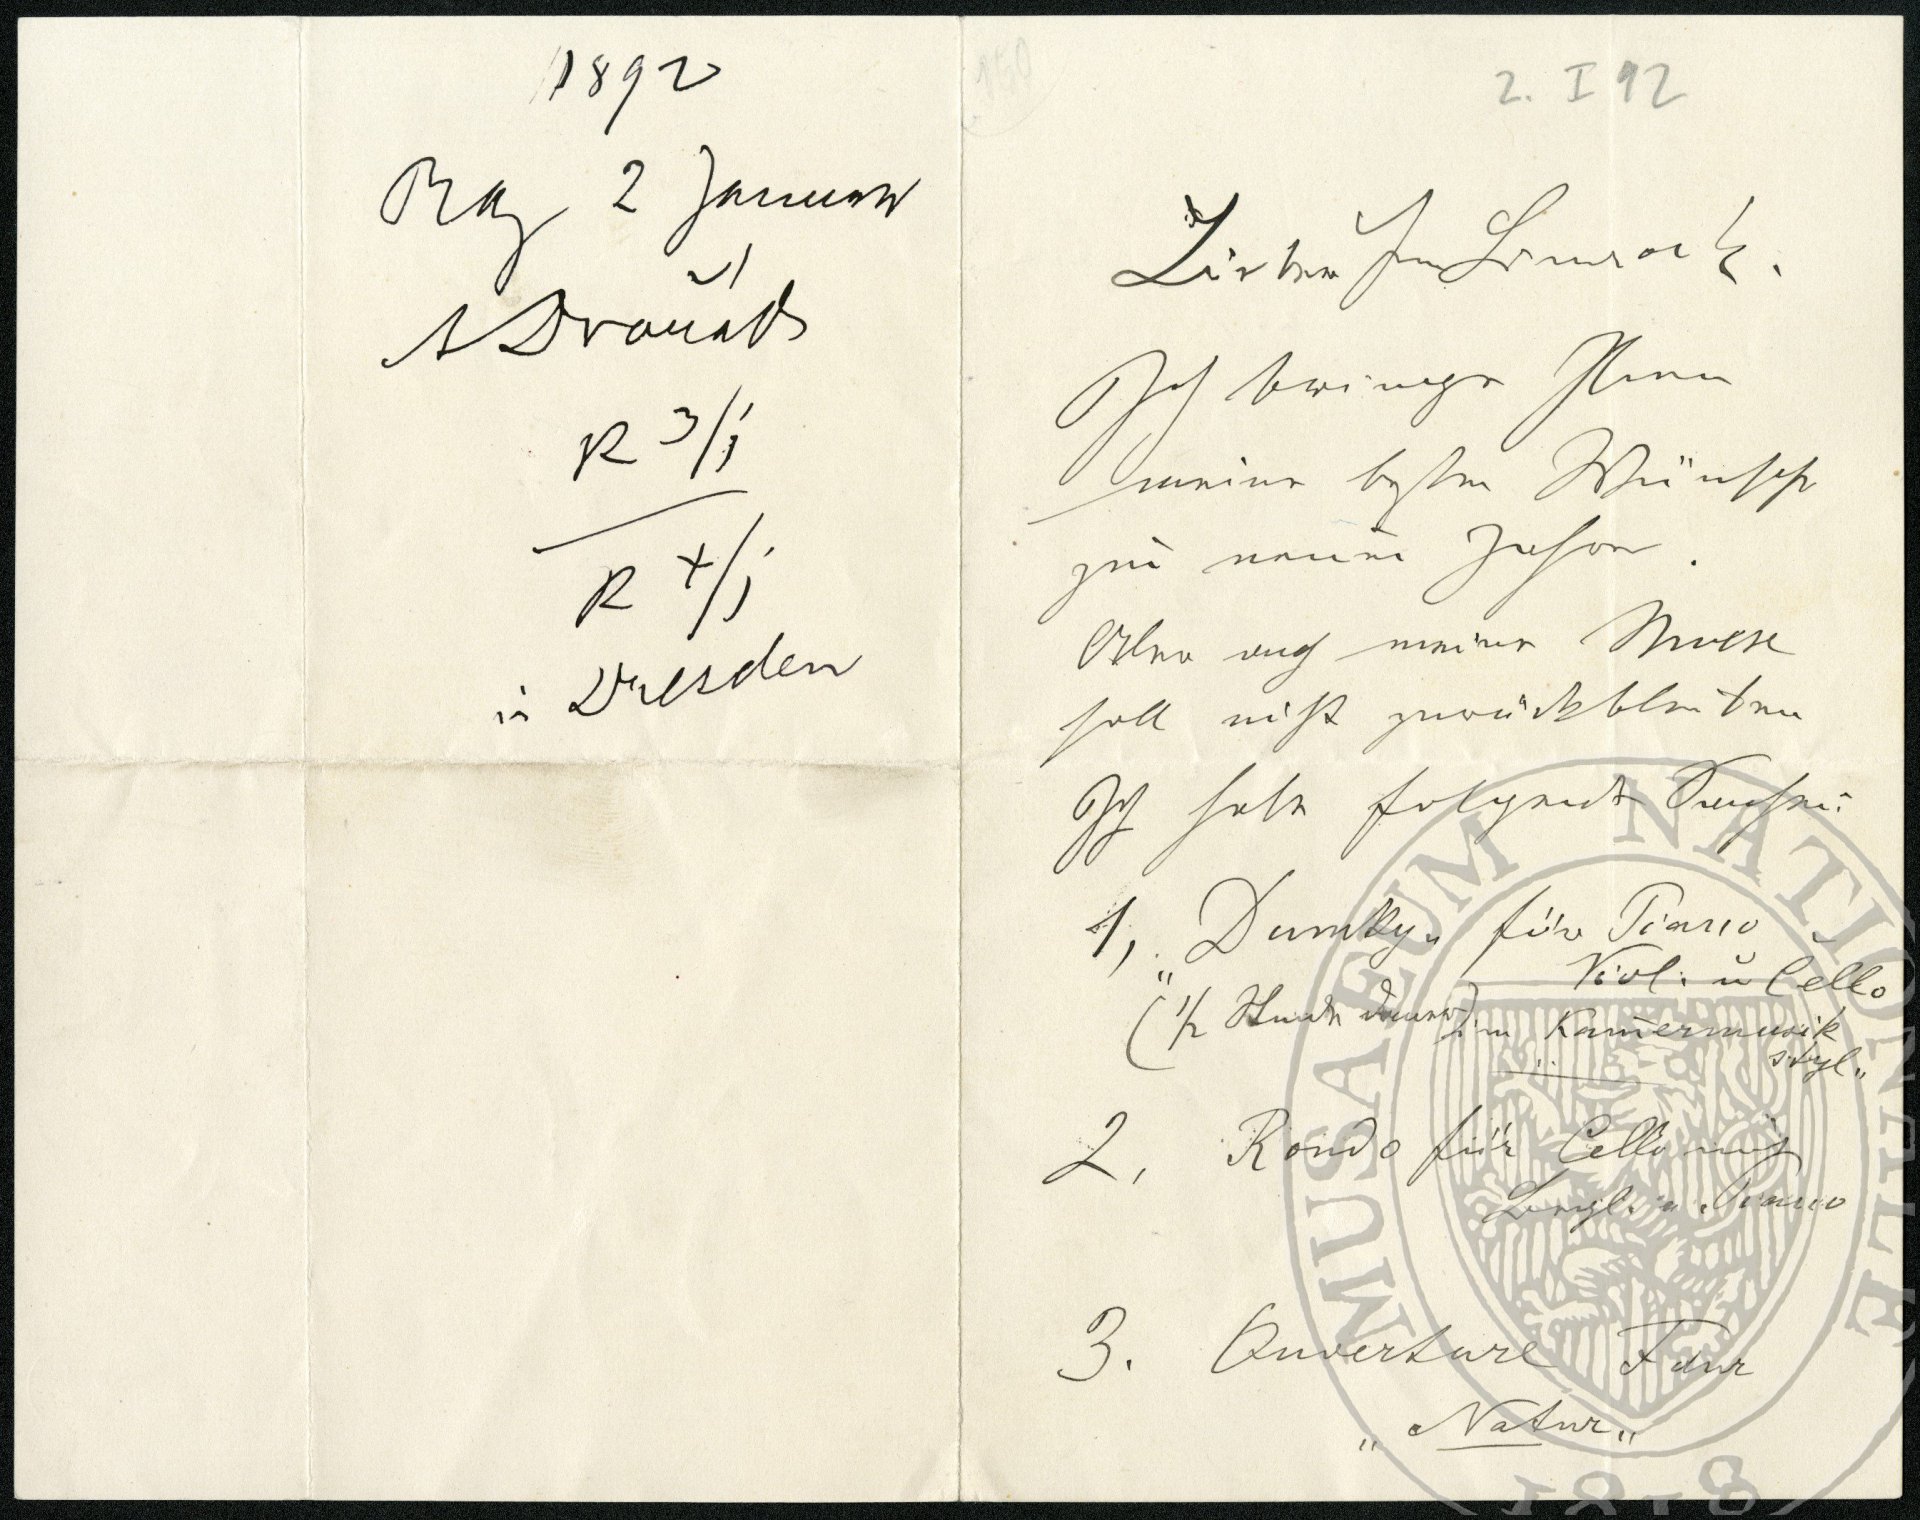 1892
Prag 2 Januar
ADvořák
R 3/i
R 4/i
in Dresden
150
2. I 92
Lieber Freund Simrock.
Ich bringe Ihnen
meine besten Wünsche
zum neuen Jahre.
Aber auch meine Muse
soll nicht zurückbleiben
Ich habe folgende Sachen:
1, „Dumky“ für Piano
Viol. u Cello
(1/2 Stunde Dauer) im Kam̅ermusik
styl“
2, Rondo für Cello mit
Begl. v. Piano
3. Ouverture F dur
„Natur“
MUSAEUM NATIONALE
1818